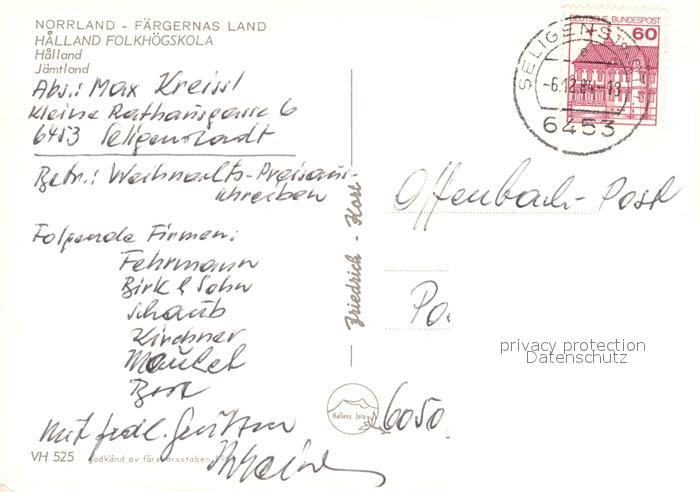 NORRLAND - FÄRGERNAS LAND
HÅLLAND FOLKHÖGSKOLA
Hålland
Jämtland
Abs.: Max Kreissl
Kleine Rathausgasse 6
6453 Seligenstadt
Betr.: Weihnachts-Preisaus-
schreiben
Folgende Firmen:
Fehrmann
Birk & Sohn
Schaub
Kirchner
Mit frdl. Grüßen
VH 525 Godkänd av försvarsstaben
Friedrich - Kort
Hallens foto
DEUTSCHE BUNDESPOST
60
SELIGENST.
-6.12.84-18
6453
Offenbach-Post
Po
6050
privacy protection
Datenschutz